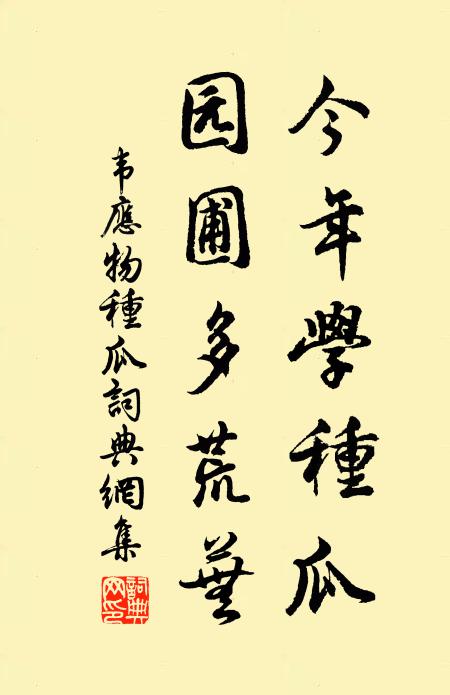 今年學種瓜
园圃多荒蕪
韦應物種瓜詞典網集
詞典網印